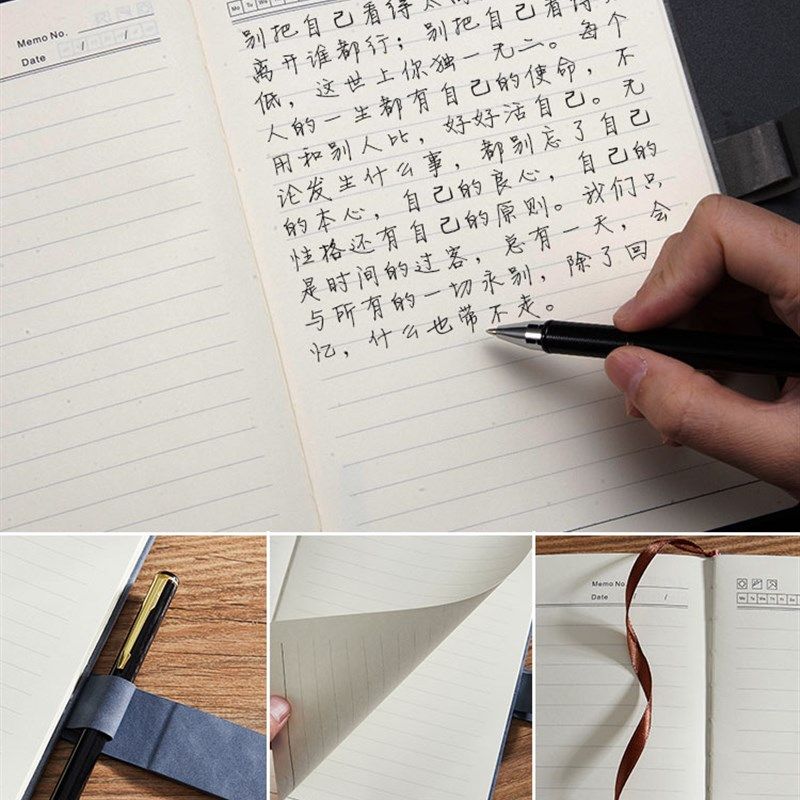 Memo No.
Date / /
Mo Tu We
别把自己看得太
离开谁都行；别把自己看得
低，这世上你独一无二。每个
人的一生都有自己的使命，不
用和别人比，好好活自己。无
论发生什么事，都别忘了自己
的本心，自己的良心，自己的
性格还有自己的原则。我们只
是时间的过客，总有一天，会
与所有的一切永别，除了回
忆，什么也带不走。
Memo No.
Date / /
Mo Tu We Th Fr Sa